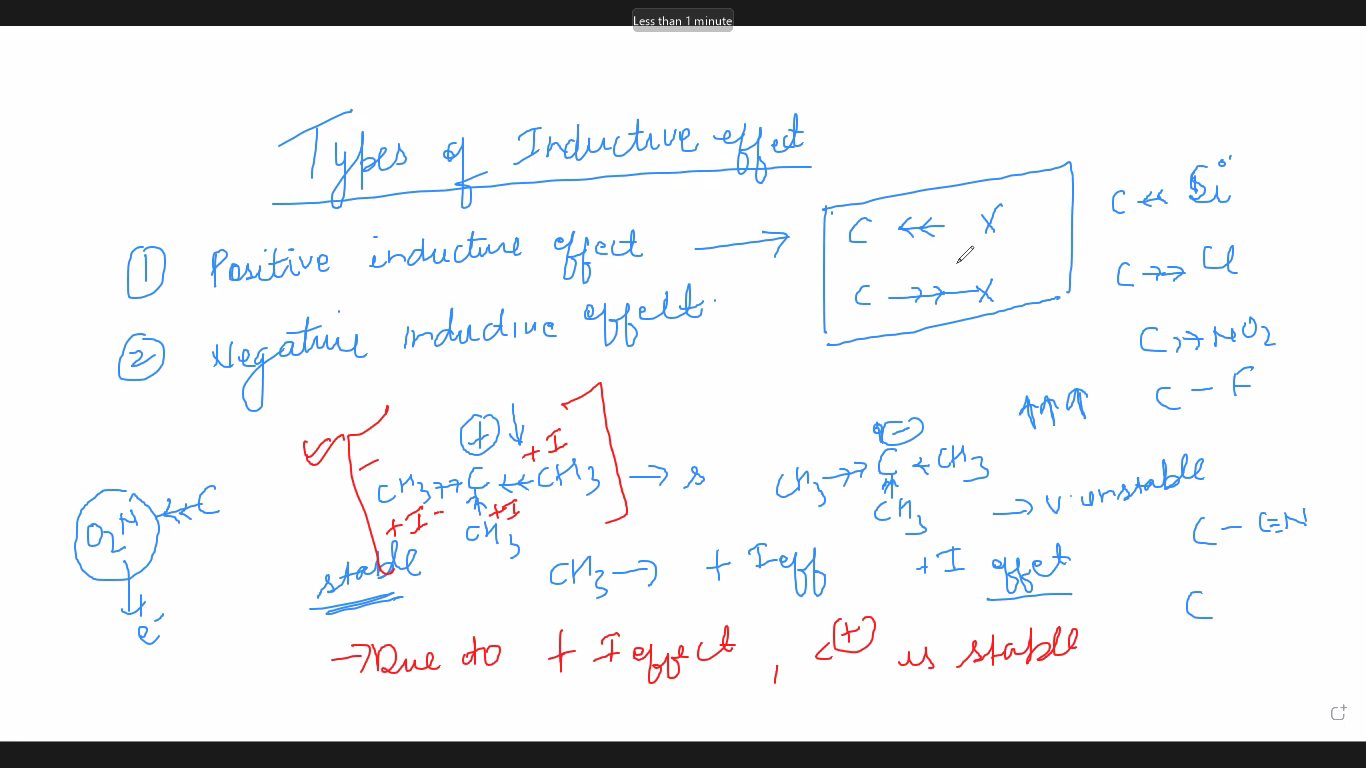 Less than 1 minute
Types of Inductive effect
① Positive inductive effect →
② Negative inductive effect.
C ↞ X
C ↠ X
C ↞ Si
C ↠ Cl
C ↠ NO2
C - F
C - C≡N
C
⊕ ↓ +I
CH3 ↠ C ↞ CH3 → s
+I +I
↑
CH3
stable
⊖ ↑↑↑
CH3 ↠ C ← CH3
↑
CH3 → v. unstable
O2N ↞ C
↓
e-
CH3 → + I eff
+ I effect
→ Due to + I effect, C⊕ is stable